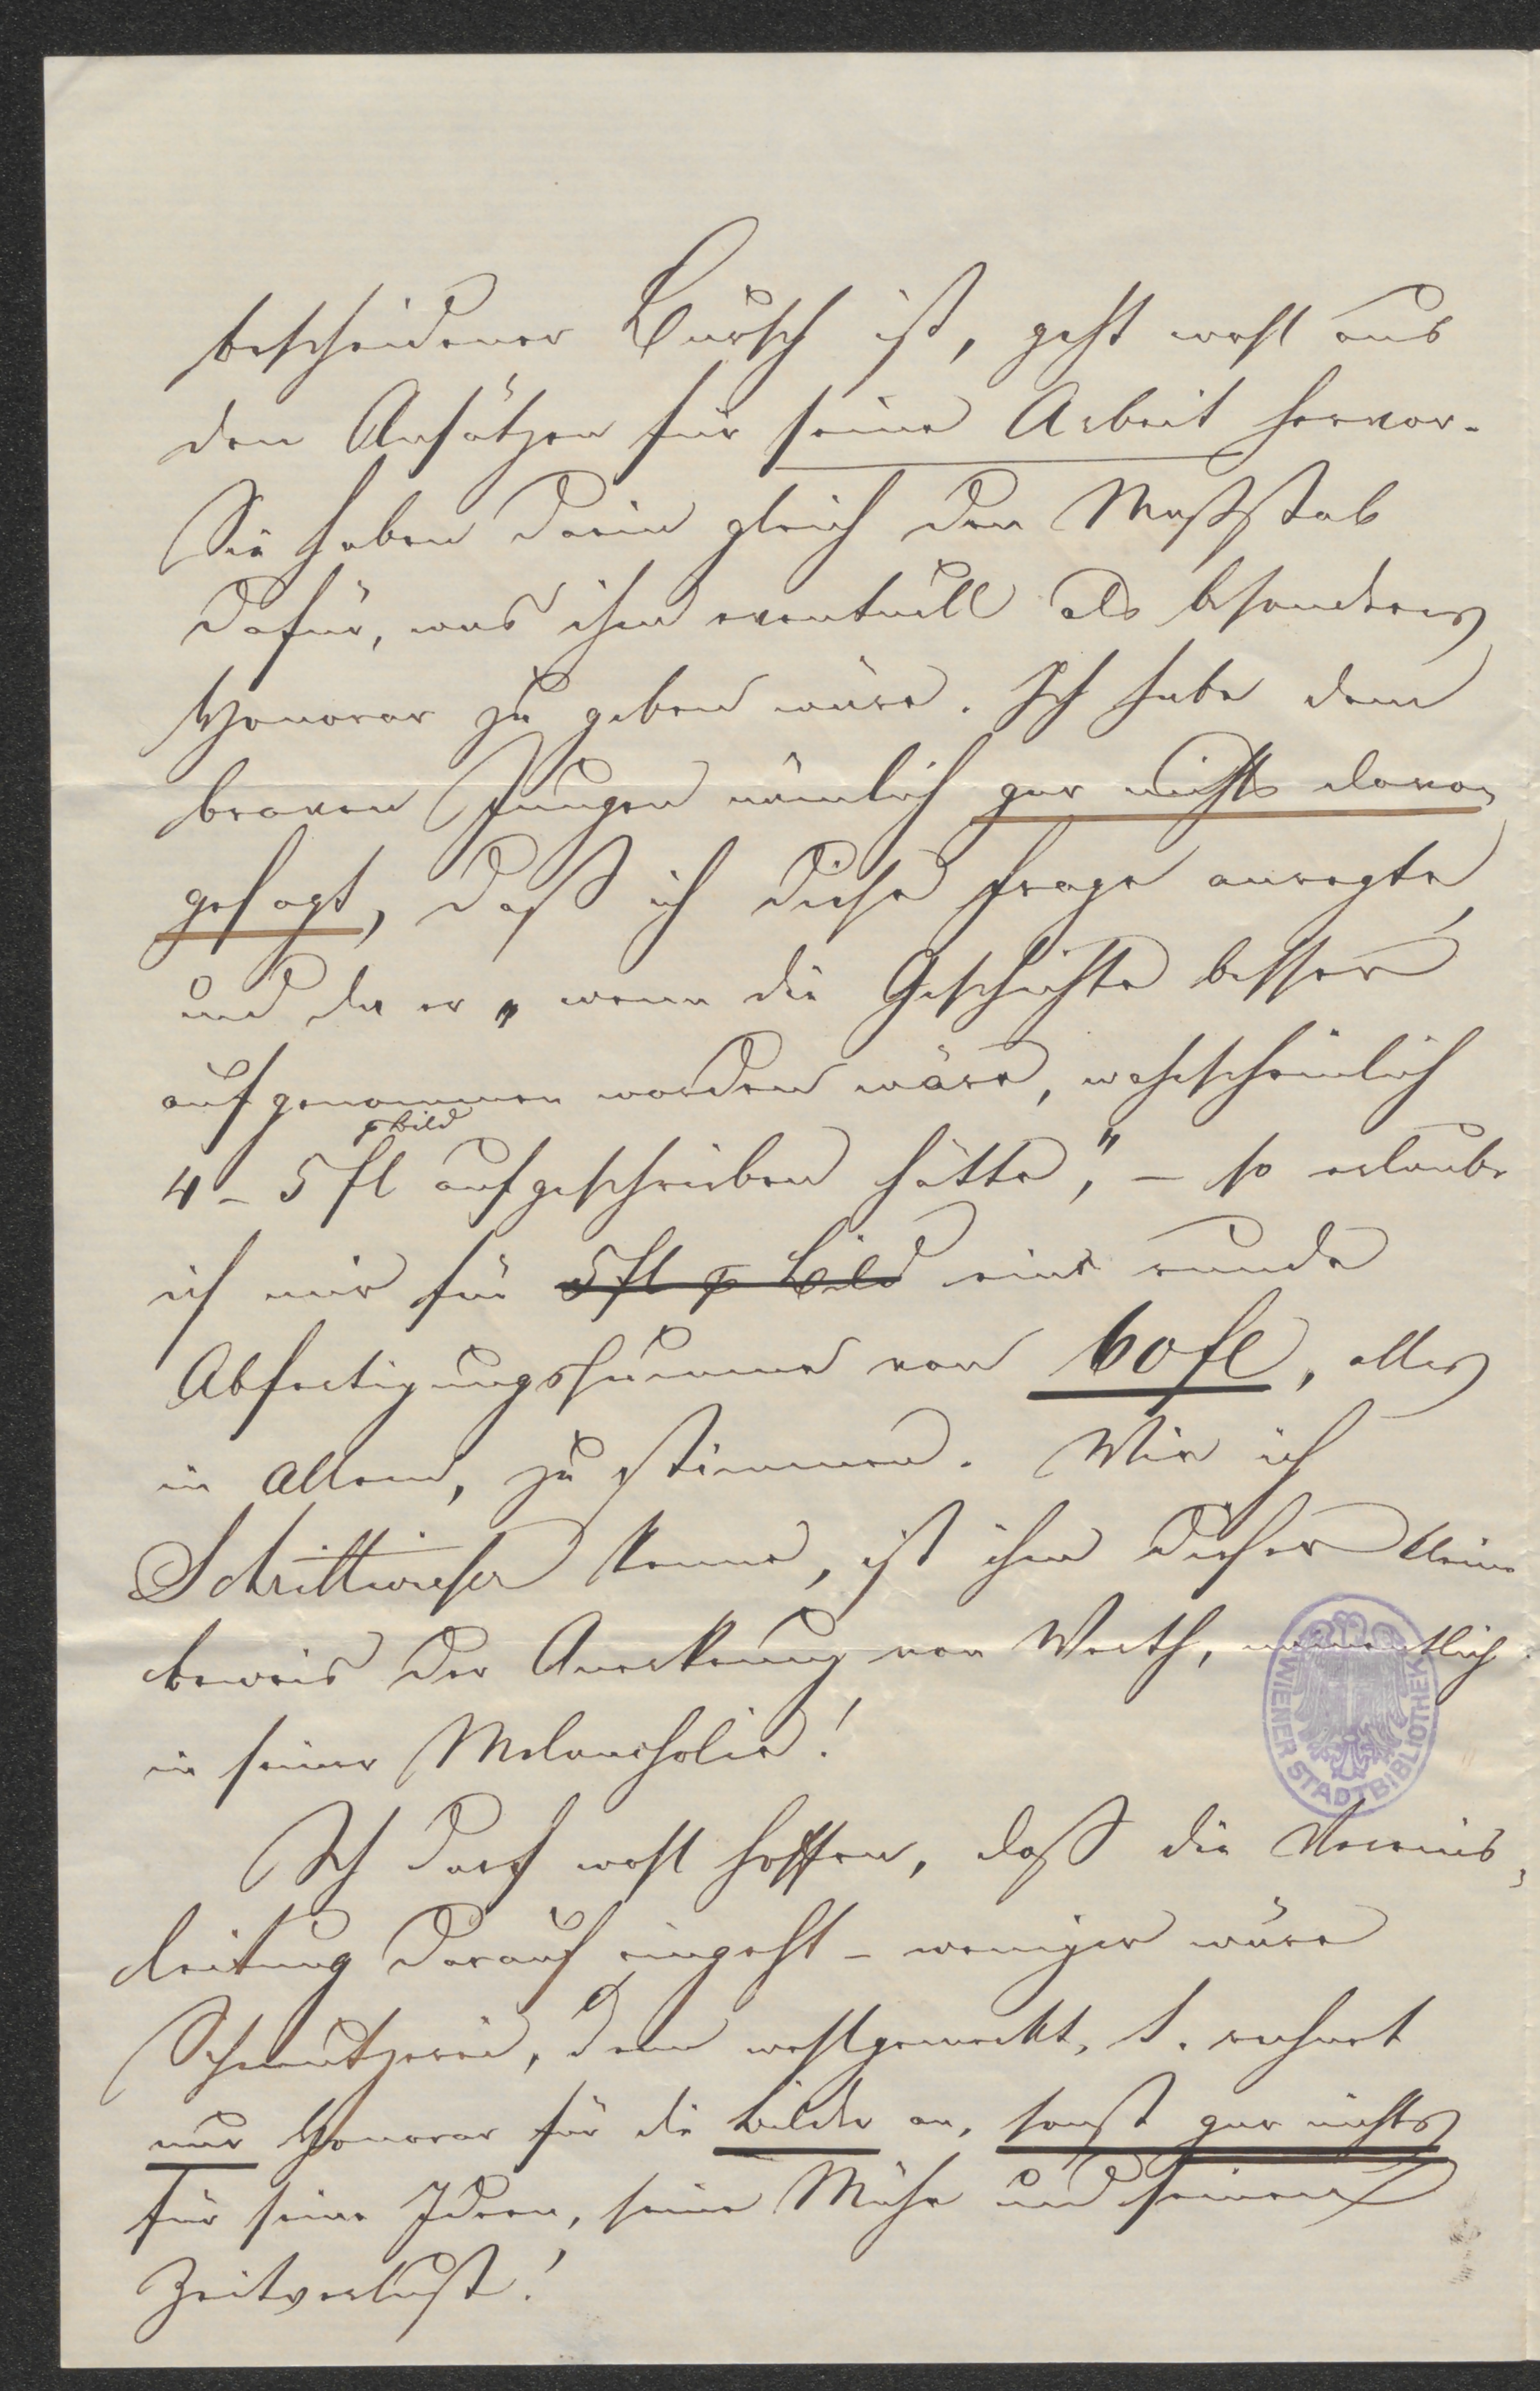 bescheidener Bursch ist, geht wohl aus
den Ansätzen für seine Arbeit hervor.
Sie haben darin gleich den Maßstab
dafür, was ihm eventuell als besonderes
Honorar zu geben wäre. Ich habe dem
braven Jungen nämlich gar nichts davon
gesagt, daß ich diese Frage anregte,
und da er „wenn die Geschichte besser
aufgenommen worden wäre, wahrscheinlich
p Bild
4 – 5 fl aufgeschrieben hätte," – so erlaube
ich mir für 5 fl p Bild eine runde
Abfertigungssumme von 60 fl, alles
in Allem, zu stimmen. Wie ich
Schrittwieser kenne, ist ihm dieser kleine
Beweis der Anerkennung von Werth, namentlich
in seiner Melancholie!
Ich darf wohl hoffen, daß die Vereins-
leitung darauf eingeht – weniger wäre
Schmutzerei, denn wohlgemerkt, S. rechnet
nur Honorar für die Bilder an, sonst gar nichts
für seine Ideen, seine Mühe und seinen
Zeitverlust!
WIENER STADTBIBLIOTHEK